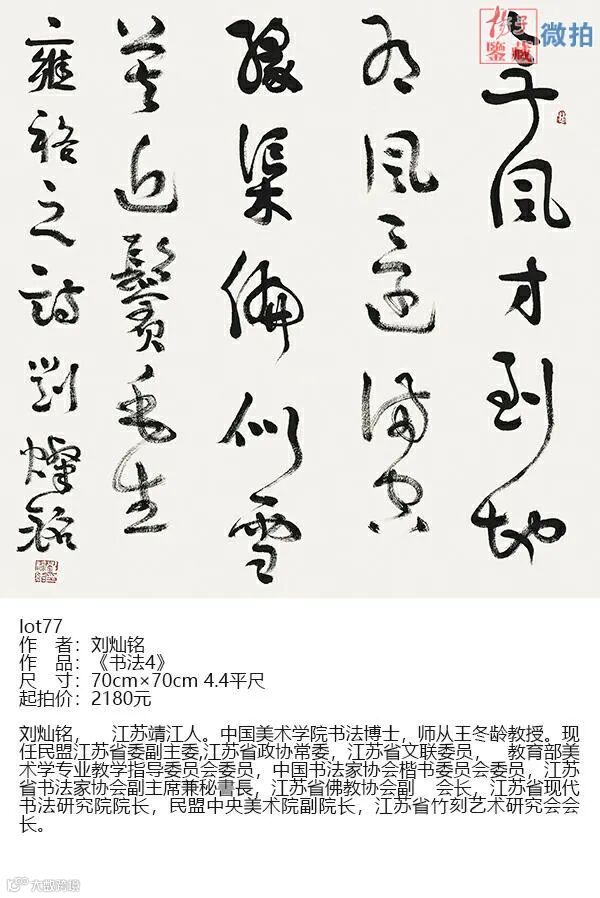 無風才到地
有風還滿空
緣渠偏似雪
莫近鬢毛生
雍裕之詩 劉燦銘
揚子鑒藏 微拍
lot77
作 者：刘灿铭
作 品：《书法4》
尺 寸：70cm×70cm 4.4平尺
起拍价：2180元
刘灿铭， 江苏靖江人。中国美术学院书法博士，师从王冬龄教授。现
任民盟江苏省委副主委,江苏省政协常委，江苏省文联委员， 教育部美
术学专业教学指导委员会委员，中国书法家协会楷书委员会委员，江苏
省书法家协会副主席兼秘書長，江苏省佛教协会副 会长，江苏省现代
书法研究院院长，民盟中央美术院副院长，江苏省竹刻艺术研究会会
长。
大数跨境